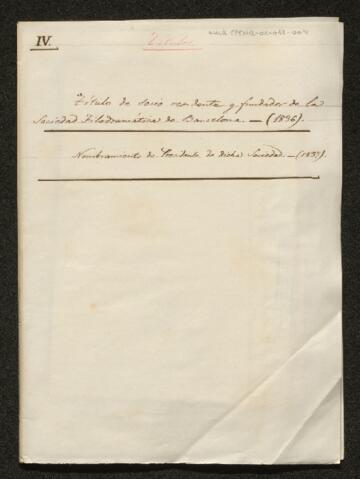 IV.
Títulos.
Título de socio residente y fundador de la
Sociedad Filodramática de Barcelona. — (1836).
Nombramiento de Presidente de dicha Sociedad. — (1837).